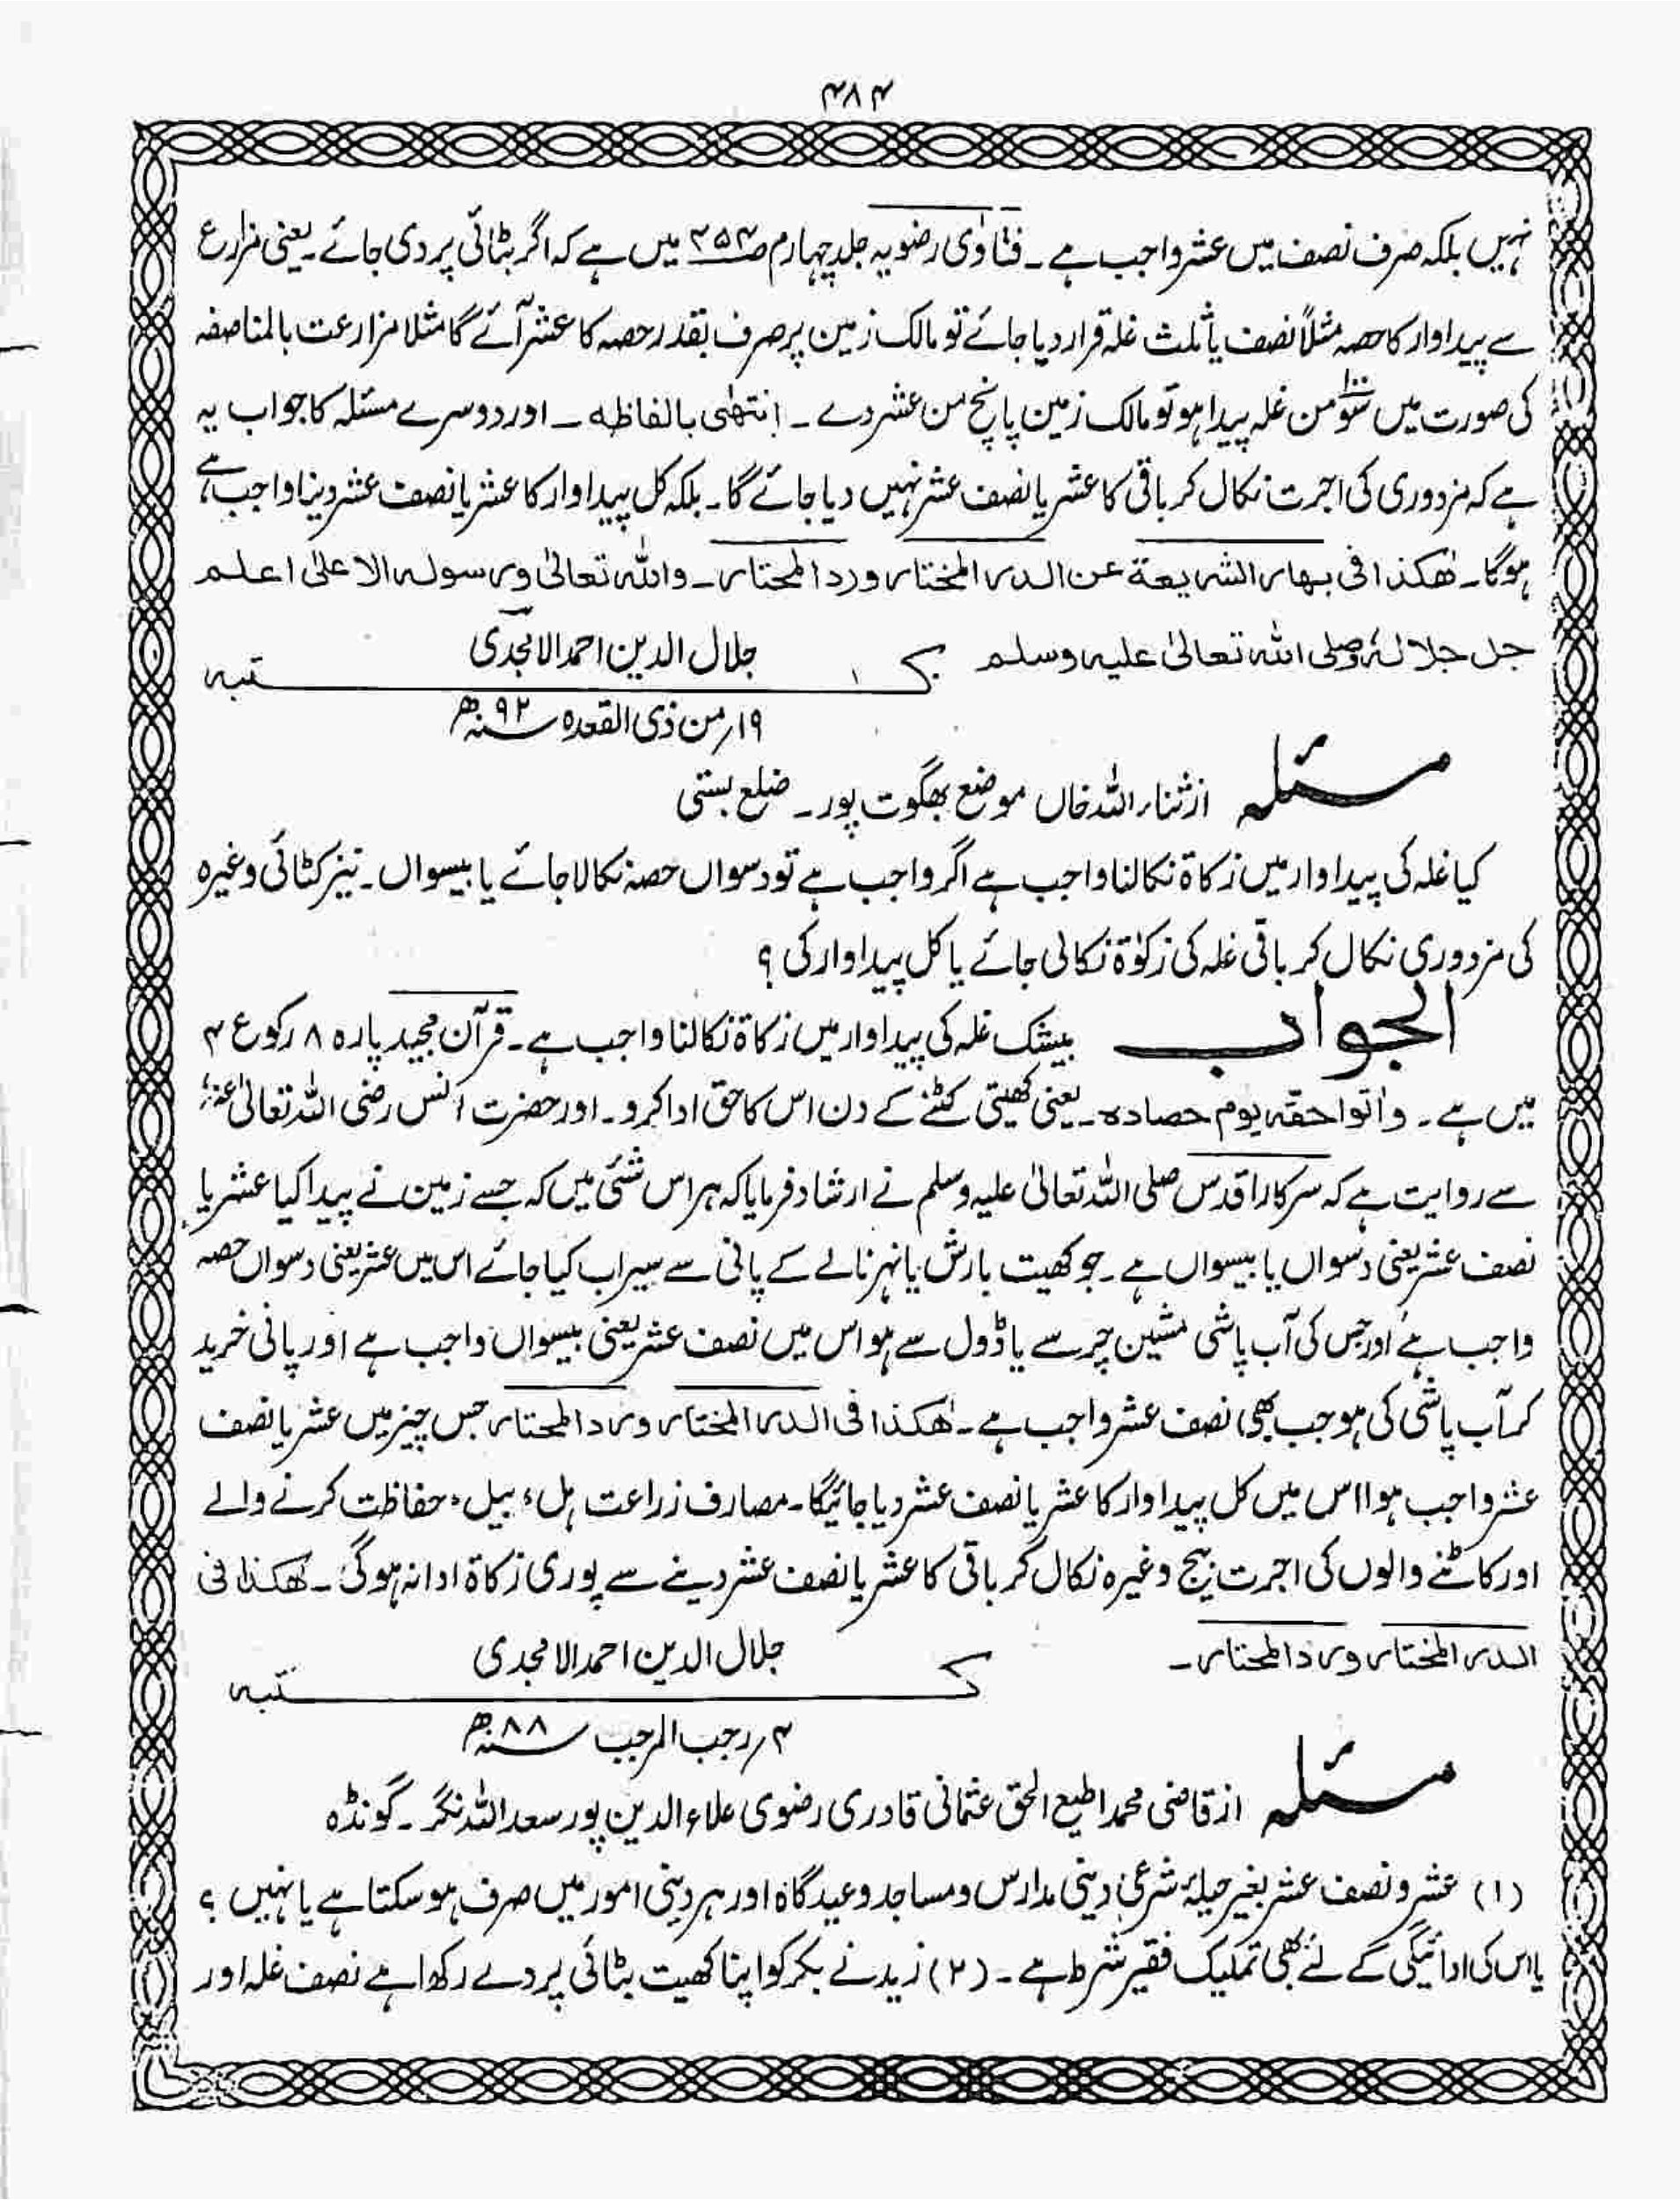 ۴۸۴
نہیں بلکہ صرف نصف میں عشر واجب ہے ۔ فتاوٰی رضویہ جلد چہارم ص۴۵۴ میں ہے کہ اگر بٹائی پر دی جائے ۔ یعنی مزارع
سے پیداوار کا حصہ مثلاً نصف یا ثلث غلہ قرار دیا جائے تو مالک زمین پر صرف بقدر حصہ کا عشر آئے گا مثلا مزارعت بالمناصفہ
کی صورت میں سَو من غلہ پیدا ہو تو مالک زمین پانچ من عشر دے ۔ انتھٰی بالفاظہ ۔ اور دوسرے مسئلہ کا جواب یہ
ہے کہ مزدوری کی اجرت نکال کر باقی کا عشر یا نصف عشر نہیں دیا جائے گا ۔ بلکہ کل پیداوار کا عشر یا نصف عشر دینا واجب ہے
ہوگا ۔ ھٰکذا فی بھار الشریعۃ عن الدر المختار ورد المحتار ۔ واللہ تعالیٰ ورسولہ الاعلیٰ اعلم
جل جلالہٗ وصلی اللہ تعالیٰ علیہ وسلم کتبہ جلال الدین احمد الامجدی
۱۹؍ من ذی القعدہ سنہ ۹۲ھ
مسئلہ از ثناء اللہ خاں موضع بھگوت پور ۔ ضلع بستی
کیا غلہ کی پیداوار میں زکاۃ نکالنا واجب ہے اگر واجب ہے تو دسواں حصہ نکالا جائے یا بیسواں ۔ نیز کٹائی وغیرہ
کی مزدوری نکال کر باقی غلہ کی زکوٰۃ نکالی جائے یا کل پیداوار کی ؟
الجواب بیشک غلہ کی پیداوار میں زکاۃ نکالنا واجب ہے ۔ قرآن مجید پارہ ۸ رکوع ۴
میں ہے ۔ واٰتوا حقہ یوم حصادہ ۔ یعنی کھیتی کٹنے کے دن اس کا حق ادا کرو ۔ اور حضرت انس رضی اللہ تعالیٰ عنہ
سے روایت ہے کہ سرکار اقدس صلی اللہ تعالیٰ علیہ وسلم نے ارشاد فرمایا کہ ہر اس شئی میں کہ جسے زمین نے پیدا کیا عشر یا
نصف عشر یعنی دسواں یا بیسواں ہے ۔ جو کھیت بارش یا نہر نالے کے پانی سے سیراب کیا جائے اس میں عشر یعنی دسواں حصہ
واجب ہے اور جس کی آب پاشی مشین چرسے یا ڈول سے ہو اس میں نصف عشر یعنی بیسواں واجب ہے اور پانی خرید
کر آب پاشی کی ہو جب بھی نصف عشر واجب ہے ۔ ھٰکذا فی الدر المختار ورد المحتار جس چیز میں عشر یا نصف
عشر واجب ہوا اس میں کل پیداوار کا عشر یا نصف عشر دیا جائیگا ۔ مصارف زراعت ہل، بیل، حفاظت کرنے والے
اور کاٹنے والوں کی اجرت بیج وغیرہ نکال کر باقی کا عشر یا نصف عشر دینے سے پوری زکاۃ ادا نہ ہوگی ۔ ھٰکذا فی
الدر المختار ورد المحتار ۔ کتبہ جلال الدین احمد الامجدی
۴؍ رجب المرجب سنہ ۸۸ھ
مسئلہ از قاضی محمد اطیع الحق عثمانی قادری رضوی علاء الدین پور سعد اللہ نگر ۔ گونڈہ
(۱) عشر و نصف عشر بغیر حیلۂ شرعی دینی مدارس و مساجد و عیدگاہ اور ہر دینی امور میں صرف ہو سکتا ہے یا نہیں ؟
یا اس کی ادائیگی کے لئے بھی تملیک فقیر شرط ہے ۔ (۲) زید نے بکر کو اپنا کھیت بٹائی پر دے رکھا ہے نصف غلہ اور